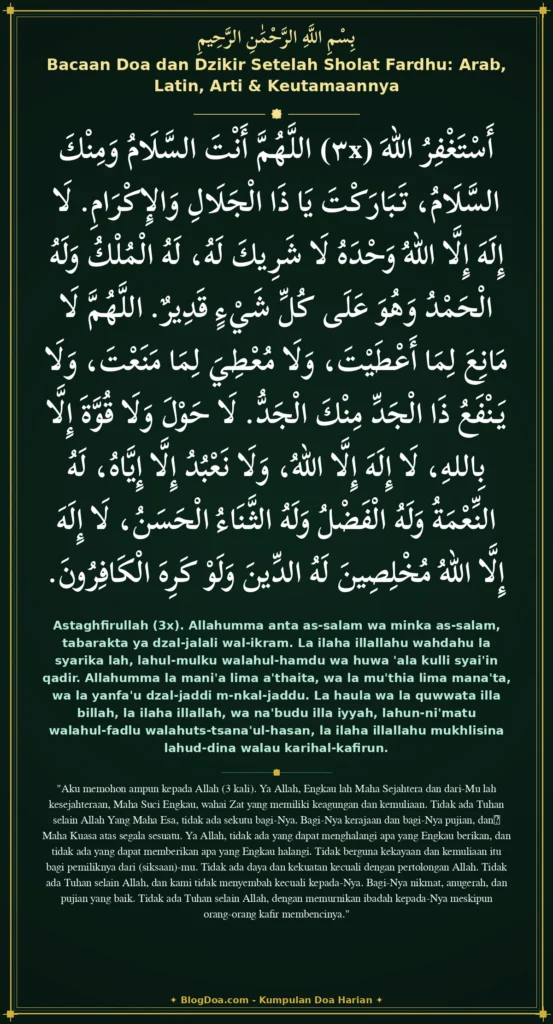 بِسْمِ اللَّهِ الرَّحْمَٰنِ الرَّحِيمِ
Bacaan Doa dan Dzikir Setelah Sholat Fardhu: Arab,
Latin, Arti & Keutamaannya
أَسْتَغْفِرُ اللهَ (٣x) اللَّهُمَّ أَنْتَ السَّلَامُ وَمِنْكَ
السَّلَامُ، تَبَارَكْتَ يَا ذَا الْجَلَالِ وَالإِكْرَامِ. لَا
إِلَهَ إِلَّا اللهُ وَحْدَهُ لَا شَرِيكَ لَهُ، لَهُ الْمُلْكُ وَلَهُ
الْحَمْدُ وَهُوَ عَلَى كُلِّ شَيْءٍ قَدِيرٌ. اللَّهُمَّ لَا
مَانِعَ لِمَا أَعْطَيْتَ، وَلَا مُعْطِيَ لِمَا مَنَعْتَ، وَلَا
يَنْفَعُ ذَا الْجَدِّ مِنْكَ الْجَدُّ. لَا حَوْلَ وَلَا قُوَّةَ إِلَّا
بِاللهِ، لَا إِلَهَ إِلَّا اللهُ، وَلَا نَعْبُدُ إِلَّا إِيَّاهُ، لَهُ
النِّعْمَةُ وَلَهُ الْفَضْلُ وَلَهُ الثَّنَاءُ الْحَسَنُ، لَا إِلَهَ
إِلَّا اللهُ مُخْلِصِينَ لَهُ الدِّينَ وَلَوْ كَرِهَ الْكَافِرُونَ.
Astaghfirullah (3x). Allahumma anta as-salam wa minka as-salam,
tabarakta ya dzal-jalali wal-ikram. La ilaha illallahu wahdahu la
syarika lah, lahul-mulku walahul-hamdu wa huwa 'ala kulli syai'in
qadir. Allahumma la mani'a lima a'thaita, wa la mu'thia lima mana'ta,
wa la yanfa'u dzal-jaddi m-nkal-jaddu. La haula wa la quwwata illa
billah, la ilaha illallah, wa na'budu illa iyyah, lahun-ni'matu
walahul-fadlu walahuts-tsana'ul-hasan, la ilaha illallahu mukhlisina
lahud-dina walau karihal-kafirun.
"Aku memohon ampun kepada Allah (3 kali). Ya Allah, Engkau lah Maha Sejahtera dan dari-Mu lah
kesejahteraan, Maha Suci Engkau, wahai Zat yang memiliki keagungan dan kemuliaan. Tidak ada Tuhan
selain Allah Yang Maha Esa, tidak ada sekutu bagi-Nya. Bagi-Nya kerajaan dan bagi-Nya pujian, dan
Maha Kuasa atas segala sesuatu. Ya Allah, tidak ada yang dapat menghalangi apa yang Engkau berikan, dan
tidak ada yang dapat memberikan apa yang Engkau halangi. Tidak berguna kekayaan dan kemuliaan itu
bagi pemiliknya dari (siksaan)-mu. Tidak ada daya dan kekuatan kecuali dengan pertolongan Allah. Tidak
ada Tuhan selain Allah, dan kami tidak menyembah kecuali kepada-Nya. Bagi-Nya nikmat, anugerah, dan
pujian yang baik. Tidak ada Tuhan selain Allah, dengan memurnikan ibadah kepada-Nya meskipun
orang-orang kafir membencinya."
✦ BlogDoa.com - Kumpulan Doa Harian ✦